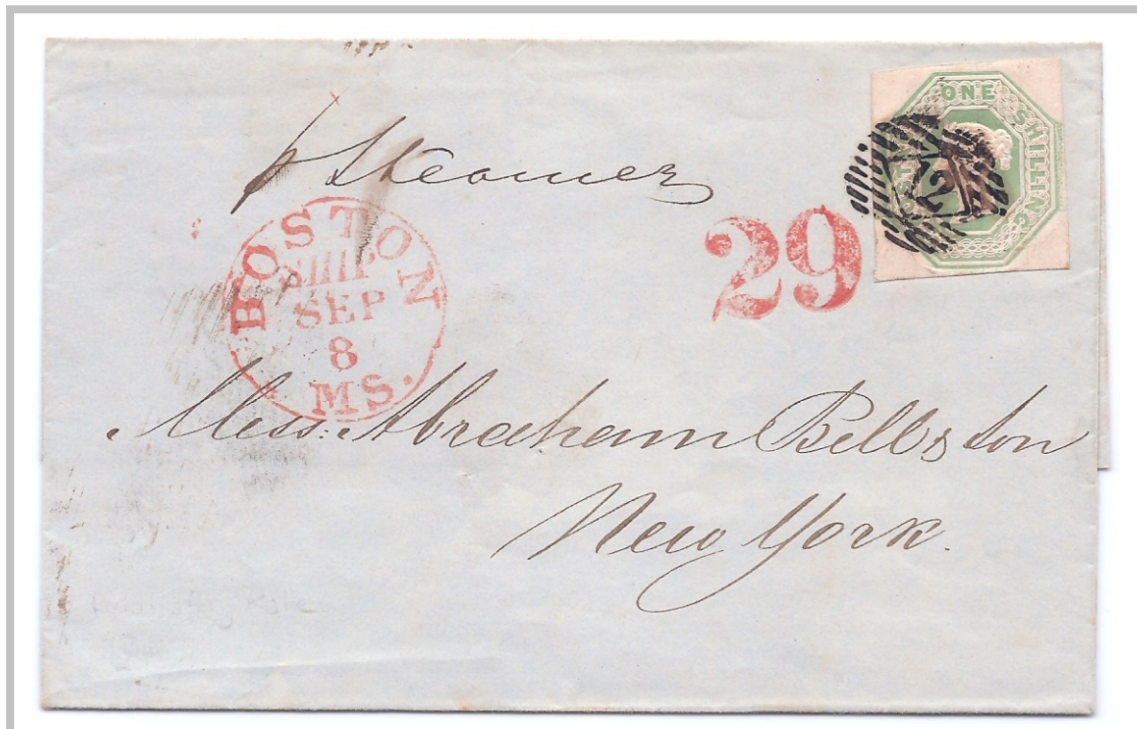 p Steamer
ONE SHILLING
POSTAGE
29
BOSTON
SHIP
SEP
8
MS.
Mess: Abraham Bell & Son
New York.